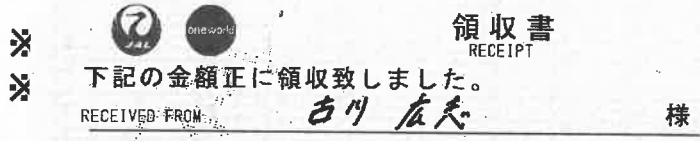 ※ JAL oneworld 領収書
RECEIPT
※ 下記の金額正に領収致しました。
RECEIVED FROM 古川 広志 様